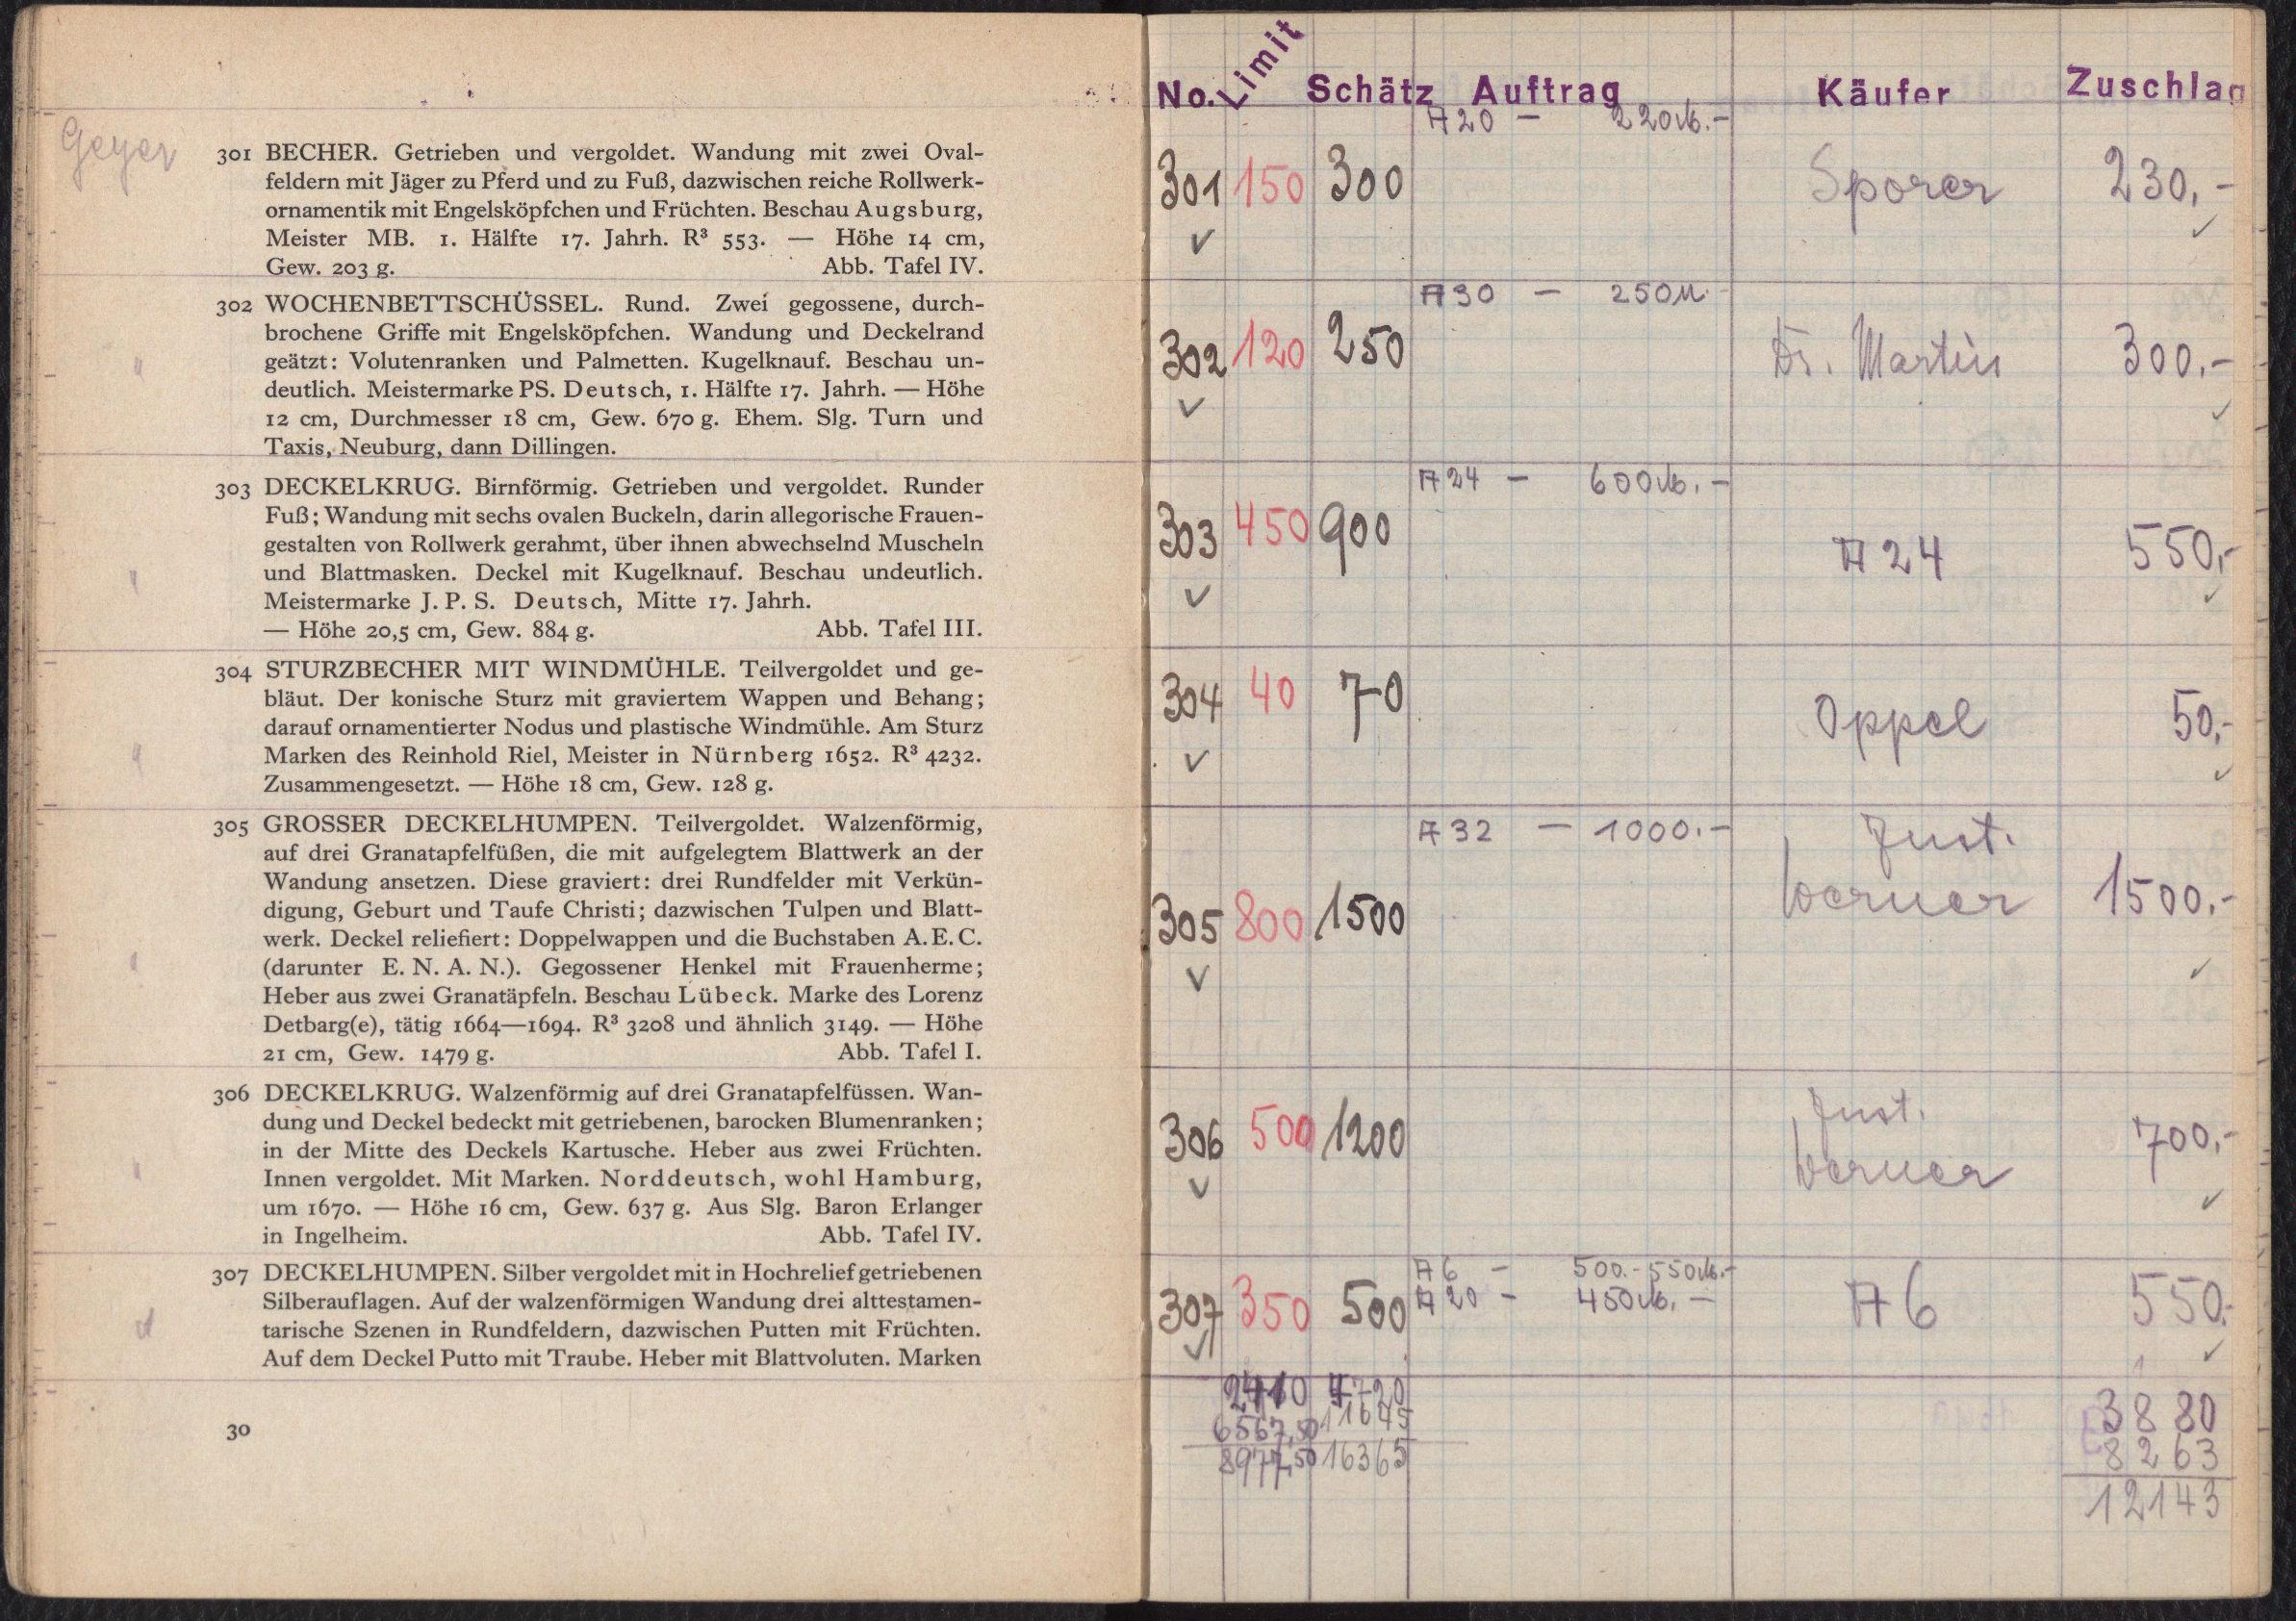 Geyer
301 BECHER. Getrieben und vergoldet. Wandung mit zwei Oval-
feldern mit Jäger zu Pferd und zu Fuß, dazwischen reiche Rollwerk-
ornamentik mit Engelsköpfchen und Früchten. Beschau Augsburg,
Meister MB. 1. Hälfte 17. Jahrh. R³ 553. — Höhe 14 cm,
Gew. 203 g. Abb. Tafel IV.
302 WOCHENBETTSCHÜSSEL. Rund. Zwei gegossene, durch-
brochene Griffe mit Engelsköpfchen. Wandung und Deckelrand
geätzt: Volutenranken und Palmetten. Kugelknauf. Beschau un-
deutlich. Meistermarke PS. Deutsch, 1. Hälfte 17. Jahrh. — Höhe
12 cm, Durchmesser 18 cm, Gew. 670 g. Ehem. Slg. Turn und
Taxis, Neuburg, dann Dillingen.
303 DECKELKRUG. Birnförmig. Getrieben und vergoldet. Runder
Fuß; Wandung mit sechs ovalen Buckeln, darin allegorische Frauen-
gestalten von Rollwerk gerahmt, über ihnen abwechselnd Muscheln
und Blattmasken. Deckel mit Kugelknauf. Beschau undeutlich.
Meistermarke J. P. S. Deutsch, Mitte 17. Jahrh.
— Höhe 20,5 cm, Gew. 884 g. Abb. Tafel III.
304 STURZBECHER MIT WINDMÜHLE. Teilvergoldet und ge-
bläut. Der konische Sturz mit graviertem Wappen und Behang;
darauf ornamentierter Nodus und plastische Windmühle. Am Sturz
Marken des Reinhold Riel, Meister in Nürnberg 1652. R³ 4232.
Zusammengesetzt. — Höhe 18 cm, Gew. 128 g.
305 GROSSER DECKELHUMPEN. Teilvergoldet. Walzenförmig,
auf drei Granatapfelfüßen, die mit aufgelegtem Blattwerk an der
Wandung ansetzen. Diese graviert: drei Rundfelder mit Verkün-
digung, Geburt und Taufe Christi; dazwischen Tulpen und Blatt-
werk. Deckel reliefiert: Doppelwappen und die Buchstaben A. E. C.
(darunter E. N. A. N.). Gegossener Henkel mit Frauenherme;
Heber aus zwei Granatäpfeln. Beschau Lübeck. Marke des Lorenz
Detbarg(e), tätig 1664—1694. R³ 3208 und ähnlich 3149. — Höhe
21 cm, Gew. 1479 g. Abb. Tafel I.
306 DECKELKRUG. Walzenförmig auf drei Granatapfelfüssen. Wan-
dung und Deckel bedeckt mit getriebenen, barocken Blumenranken;
in der Mitte des Deckels Kartusche. Heber aus zwei Früchten.
Innen vergoldet. Mit Marken. Norddeutsch, wohl Hamburg,
um 1670. — Höhe 16 cm, Gew. 637 g. Aus Slg. Baron Erlanger
in Ingelheim. Abb. Tafel IV.
307 DECKELHUMPEN. Silber vergoldet mit in Hochrelief getriebenen
Silberauflagen. Auf der walzenförmigen Wandung drei alttestamen-
tarische Szenen in Rundfeldern, dazwischen Putten mit Früchten.
Auf dem Deckel Putto mit Traube. Heber mit Blattvoluten. Marken
30
No. Limit Schätz Auftrag Käufer Zuschlag
A 20 — 220 M.-
301 150 300 Sporer 230,-
A 30 — 250 M.
302 120 250 Dr. Martin 300.-
A 24 — 600 M.-
303 450 900 A 24 550,-
304 40 70 Oppel 50,-
A 32 — 1000.- Just.
305 800 1500 Werner 1500.-
Just.
306 500 1200 Werner 700,-
A 6 — 500.- 550 M.-
307 350 500 A 20 — 450 M. — A 6 550.-
2410 4720 3880
6567,50 11645 8263
8977,50 16365 12143